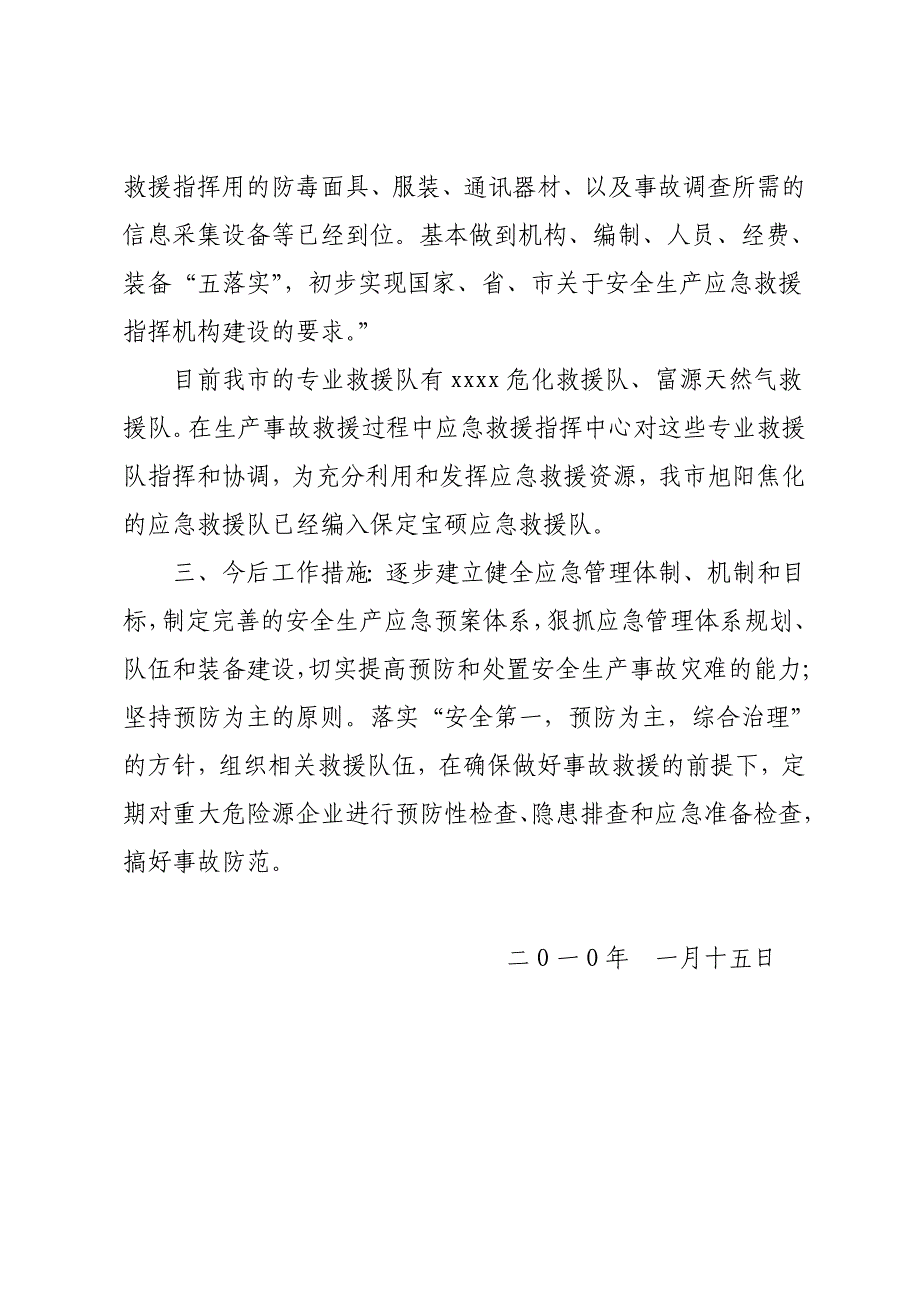 救援指挥用的防毒面具、服装、通讯器材、以及事故调查所需的
信息采集设备等已经到位。基本做到机构、编制、人员、经费、
装备“五落实”，初步实现国家、省、市关于安全生产应急救援
指挥机构建设的要求。”
目前我市的专业救援队有 xxxx 危化救援队、富源天然气救
援队。在生产事故救援过程中应急救援指挥中心对这些专业救援
队指挥和协调，为充分利用和发挥应急救援资源，我市旭阳焦化
的应急救援队已经编入保定宝硕应急救援队。
三、今后工作措施：逐步建立健全应急管理体制、机制和目
标，制定完善的安全生产应急预案体系，狠抓应急管理体系规划、
队伍和装备建设，切实提高预防和处置安全生产事故灾难的能力；
坚持预防为主的原则。落实“安全第一，预防为主，综合治理”
的方针，组织相关救援队伍，在确保做好事故救援的前提下，定
期对重大危险源企业进行预防性检查、隐患排查和应急准备检查，
搞好事故防范。
二０一０年　一月十五日